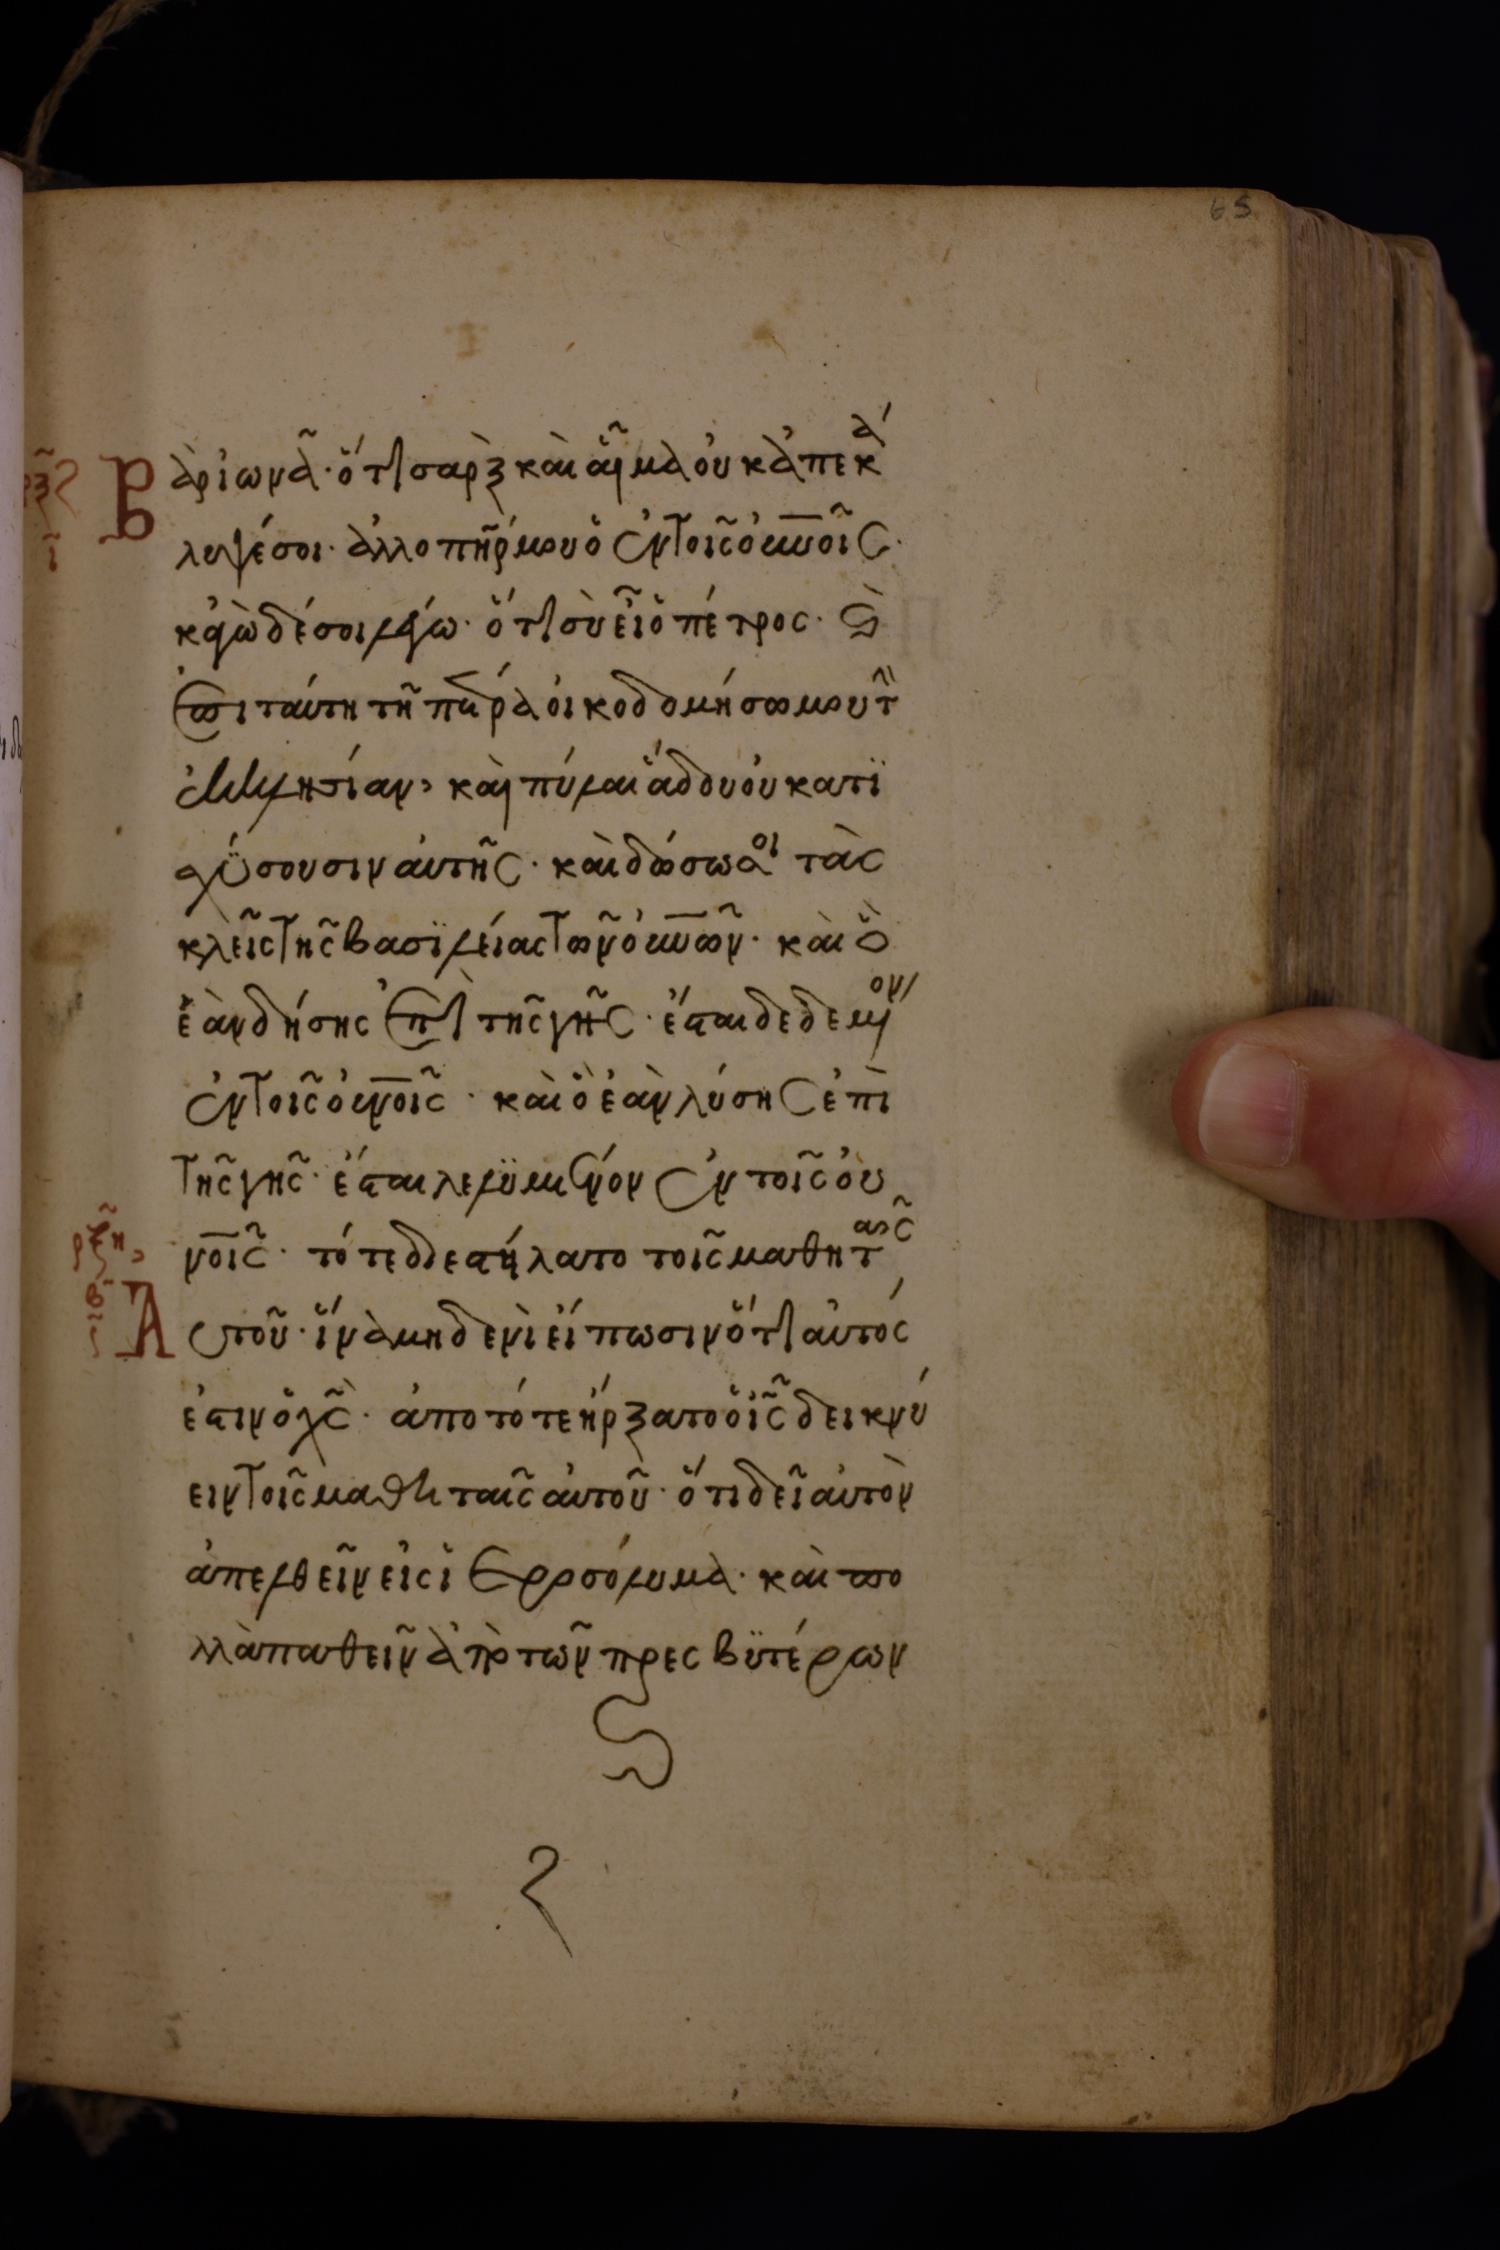 65
Βὰριωνᾶ· ὅτι σὰρξ καὶ αἷμα οὐκ ἀπεκά
λυψέ σοι· ἀλλ ο πηρ μου ὁ ἐν τοῖς οὐνοῖς·
κἀγὼ δέ σοι λέγω· ὅτι σὺ εἶ ὁ πέτρος· καὶ
ἐπι ταύτη τῆ πέτρα οἰκοδομήσω μου τὴν
ἐκκλησίαν, καὶ πύλαι ἅδου οὐ κατϊ
σχϋσουσιν αὐτῆς· καὶ δώσω σοι τὰς
κλεῖς τῆς βασϊλείας τῶν οὐνῶν· καὶ ὃ
ἐὰν δήσης ἐπὶ τῆς γῆς· ἔσται δεδεμένον
ἐν τοῖς οὐνοῖς· καὶ ὃ ἐὰν λύσης ἐπὶ
τῆς γῆς· ἔσται λελϋμένον ἐν τοῖς οὐ
νοῖς· τότε διεστήλατο τοῖς μαθηταῖς
Αυτοῦ· ἵνα μηδενὶ εἴπωσιν ὅτι αὐτός
ἐστιν ὁ χς· ἀπο τότε ἤρξατο ὁ ις δεικνύ
ειν τοῖς μαθηταῖς αὐτοῦ· ὅτι δεῖ αὐτὸν
ἀπελθεῖν εἰς ἱεροσόλυμα· καὶ πο
λλὰ παθεῖν ἀπὸ τῶν πρεσβϋτέρων